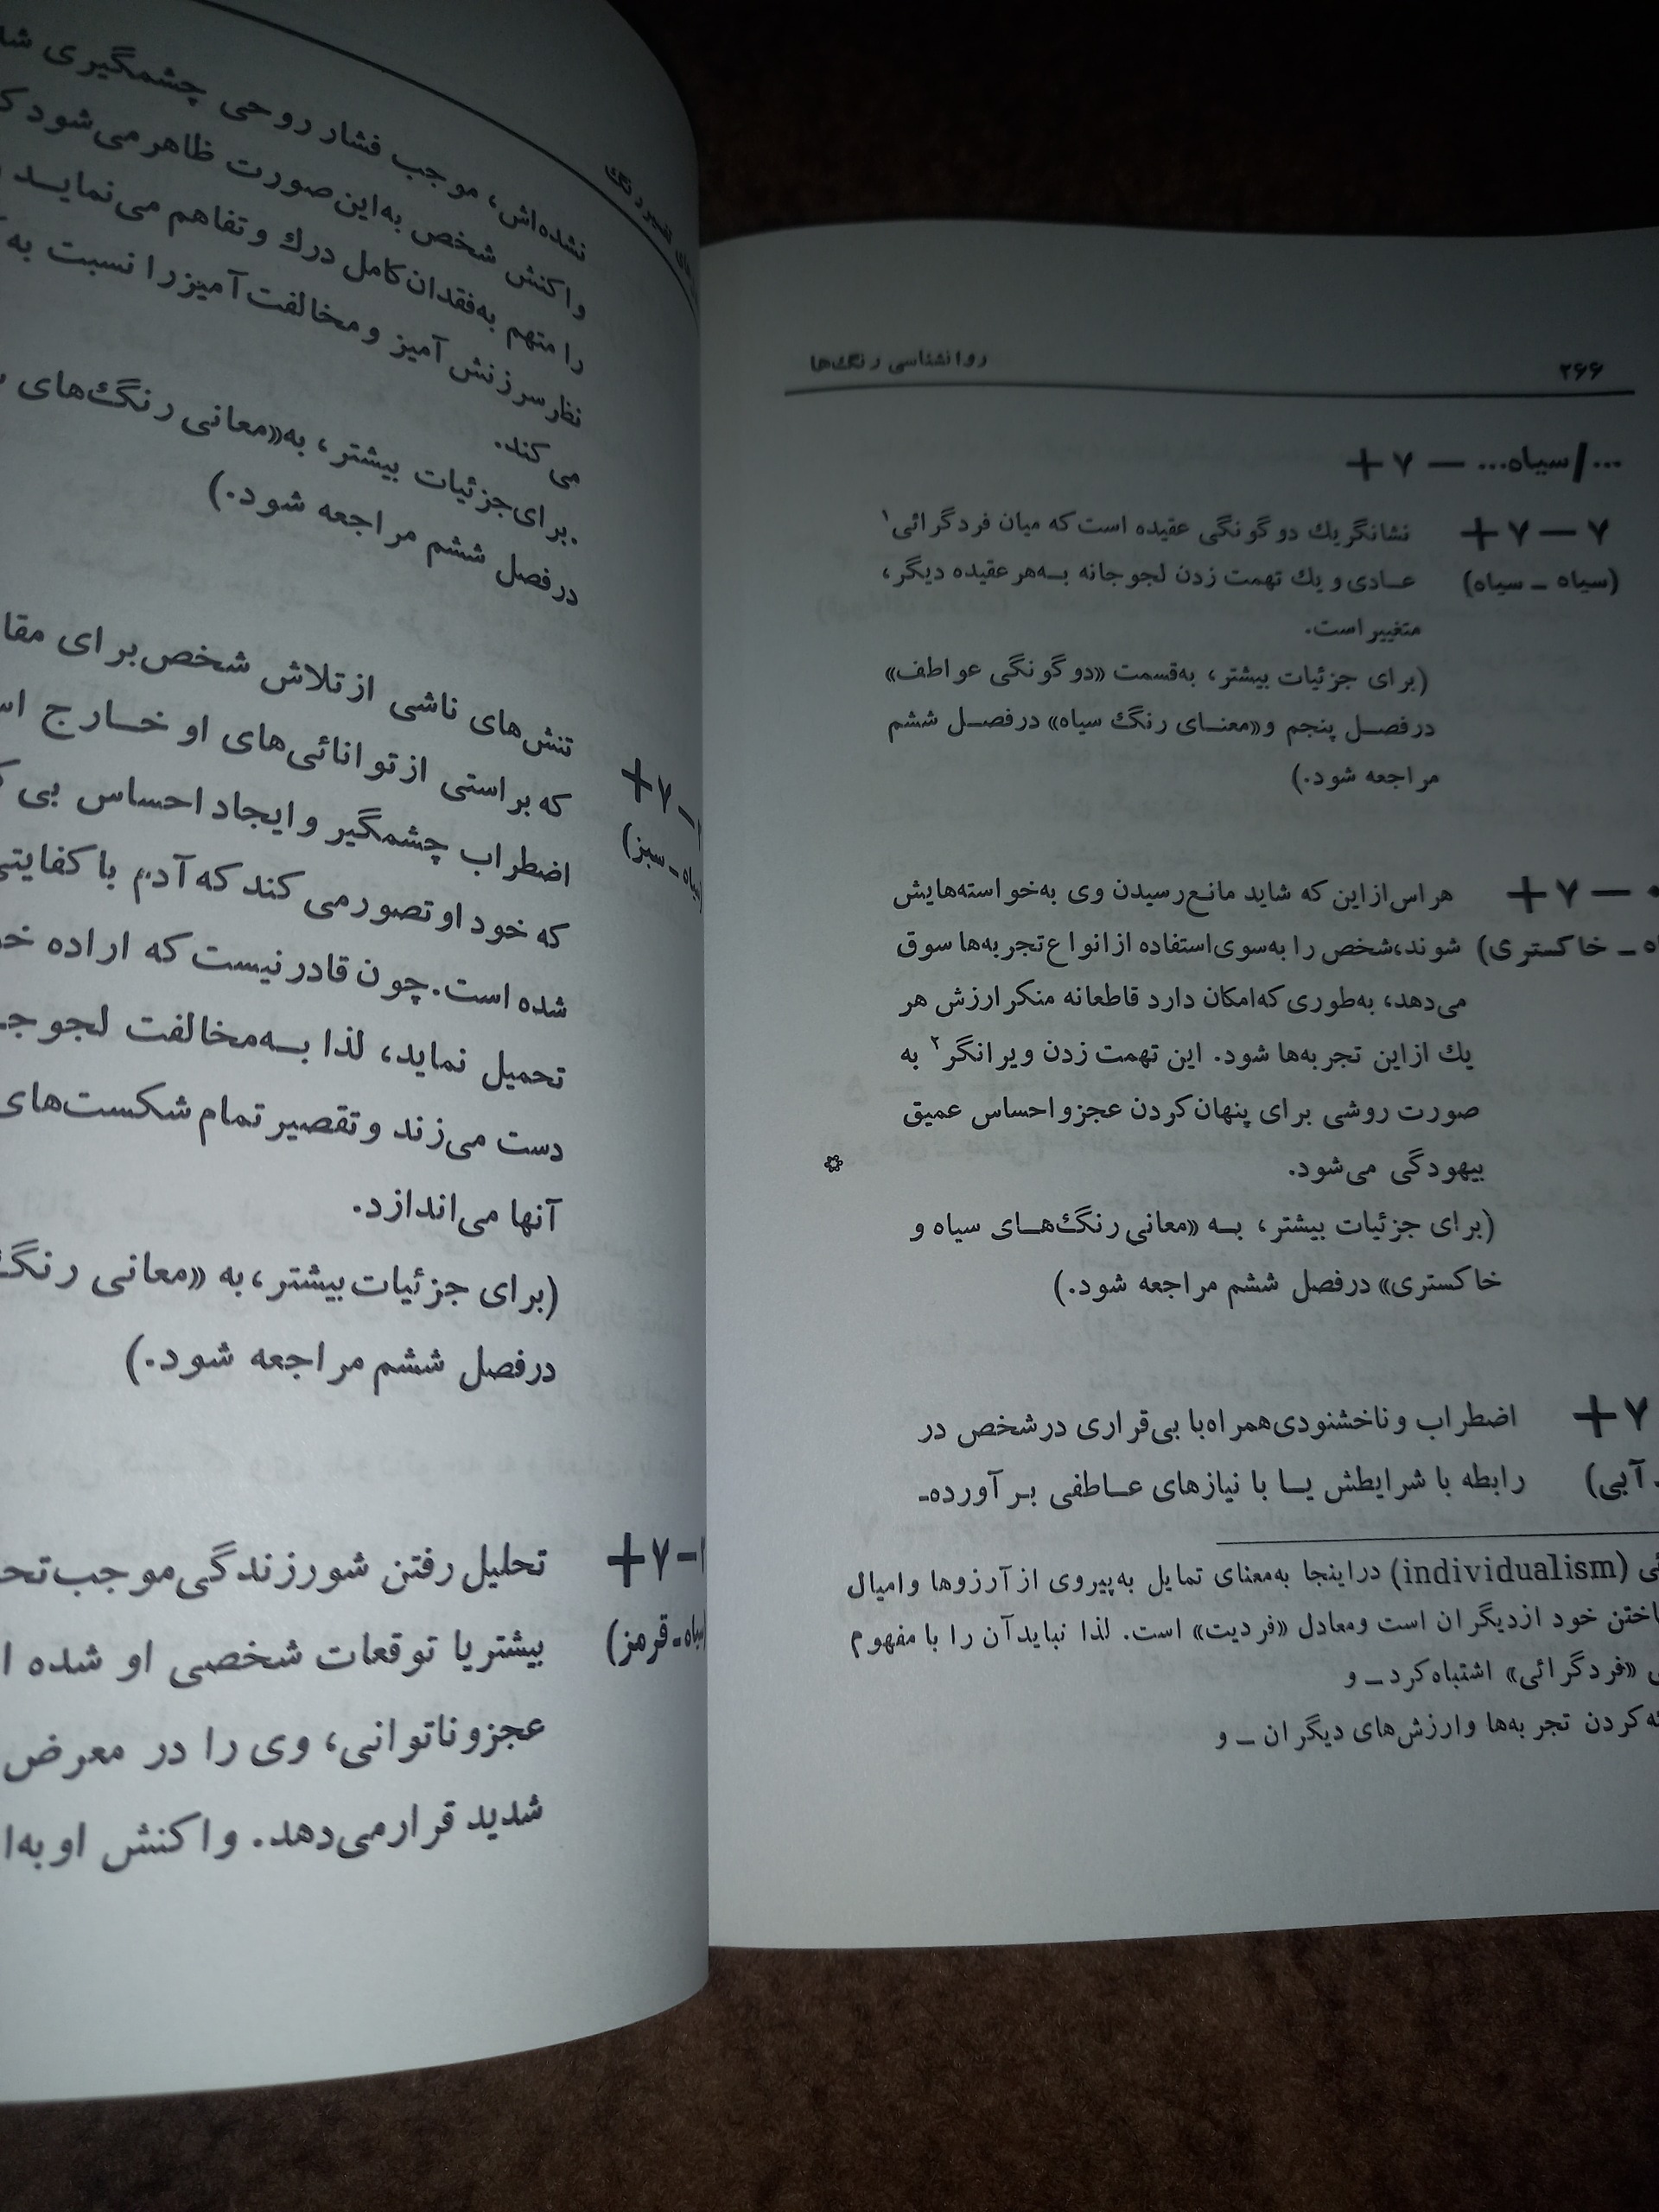 ۲۶۶
روانشناسی رنگ‌ها
.../سیاه... — ۷ +
۷ — ۷ +
نشانگر یك دوگونگی عقیده است که میان فردگرائی۱
(سیاه ـ سیاه)
عادی و یك تهمت زدن لجوجانه به‌هر عقیده دیگر،
متغییر است.
(برای جزئیات بیشتر، به‌قسمت «دوگونگی عواطف»
درفصل پنجم و«معنای رنگ سیاه» درفصل ششم
مراجعه شود.)
— ۷ +
هراس‌ازاین که شاید مانع‌رسیدن وی به‌خواسته‌هایش
ـ خاکستری)
شوند،شخص را به‌سوی‌استفاده ازانواع‌تجربه‌ها سوق
می‌دهد، به‌طوری که‌امکان دارد قاطعانه منکر ارزش هر
یك ازاین تجربه‌ها شود. این تهمت زدن ویرانگر۲ به
صورت روشی برای پنهان‌کردن عجزواحساس عمیق
بیهودگی می‌شود.
(برای جزئیات بیشتر، به «معانی رنگ‌های سیاه و
خاکستری» درفصل ششم مراجعه شود.)
۷ +
اضطراب وناخشنودی‌همراه‌با بی‌قراری درشخص در
آبی)
رابطه با شرایطش یا با نیازهای عاطفی برآورده‌ـ
(individualism) دراینجا به‌معنای تمایل به‌پیروی ازآرزوها وامیال
خود ازدیگران است ومعادل «فردیت» است. لذا نباید‌آن را با مفهوم
«فردگرائی» اشتباه‌کرد ـ و
کردن تجربه‌ها وارزش‌های دیگران ـ و
رنگ
نشده‌اش، موجب فشار روحی چشمگیری
واکنش شخص به‌این‌صورت ظاهرمی‌شود
را متهم به‌فقدان‌کامل درك وتفاهم می‌نماید
نظرسرزنش‌آمیز ومخالفت‌آمیزرا نسبت به
می‌کند.
برای‌جزئیات بیشتر، به«معانی رنگ‌های
درفصل ششم مراجعه شود.)
+ ۷ —
تنش‌های ناشی ازتلاش شخص‌برای
ـ سبز)
که براستی ازتوانائی‌های او خارج
اضطراب چشمگیر وایجاد احساس بی
که خود اوتصورمی‌کند که‌آدم
شده است.چون قادرنیست که اراده
تحمیل نماید، لذا به‌مخالفت
دست می‌زند وتقصیرتمام شکست‌های
آنها می‌اندازد.
(برای جزئیات بیشتر،به «معانی
درفصل ششم مراجعه شود.)
+ ۷ —
تحلیل رفتن شورزندگی‌موجب
ـ قرمز)
بیشتریا توقعات شخصی او شده
عجزوناتوانی، وی را در معرض
شدید قرارمی‌دهد. واکنش